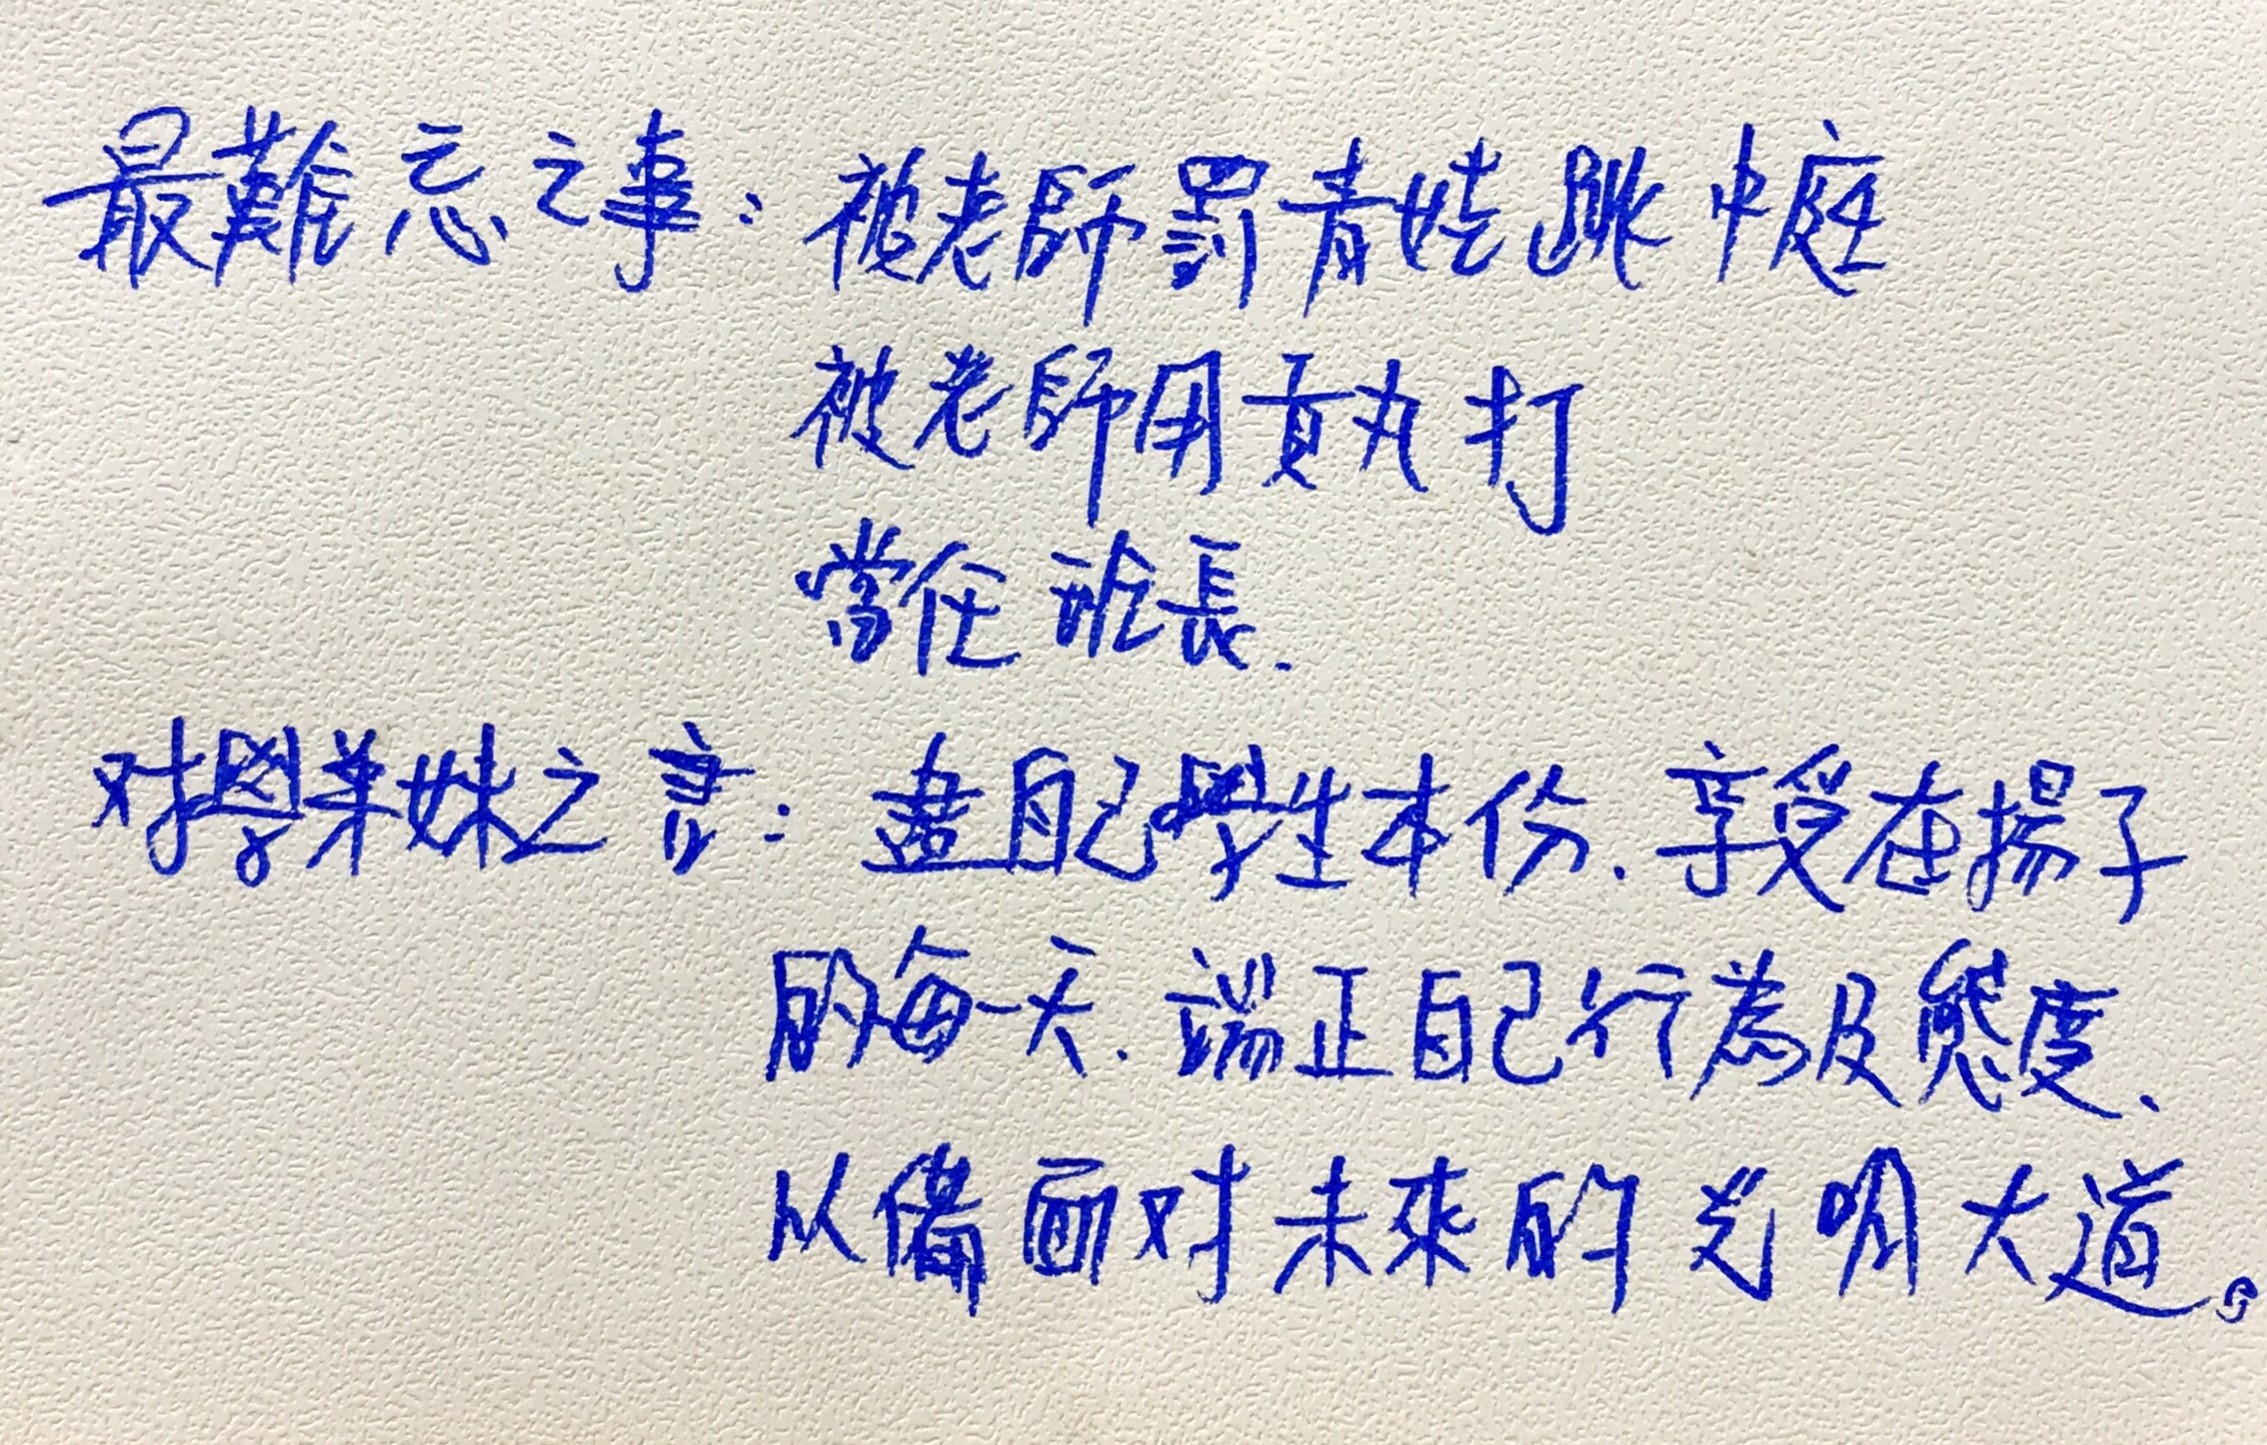 最難忘之事：被老師罰青蛙跳中庭
被老師用貢丸打
當任班長.
对學弟妹之言：盡自己學生本份.享受在揚子
的每一天.端正自己行為及態度.
以備面对未來的光明大道。